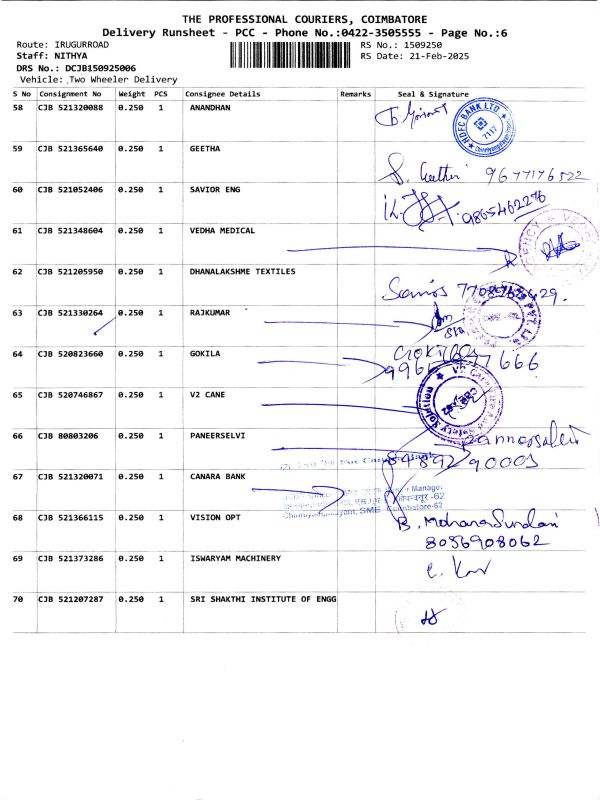 THE PROFESSIONAL COURIERS, COIMBATORE
Delivery Runsheet - PCC - Phone No.:0422-3505555 - Page No.:6
Route: IRUGURROAD
RS No.: 1509250
Staff: NITHYA
RS Date: 21-Feb-2025
DRS No.: DCJB150925006
Vehicle: Two Wheeler Delivery
S No Consignment No Weight PCS Consignee Details Remarks Seal & Signature
58 CJB 521320088 0.250 1 ANANDHAN
HDFC BANK LTD
7117
59 CJB 521365640 0.250 1 GEETHA
S. Geetha 9677176522
60 CJB 521052406 0.250 1 SAVIOR ENG
9865462276
61 CJB 521348604 0.250 1 VEDHA MEDICAL
62 CJB 521205950 0.250 1 DHANALAKSHME TEXTILES
63 CJB 521330264 0.250 1 RAJKUMAR
64 CJB 520823660 0.250 1 GOKILA
Gokila
65 CJB 520746867 0.250 1 V2 CANE
66 CJB 80803206 0.250 1 PANEERSELVI
67 CJB 521320071 0.250 1 CANARA BANK
Manager
68 CJB 521366115 0.250 1 VISION OPT
B. MohanaSundari
8056908062
69 CJB 521373286 0.250 1 ISWARYAM MACHINERY
70 CJB 521207287 0.250 1 SRI SHAKTHI INSTITUTE OF ENGG